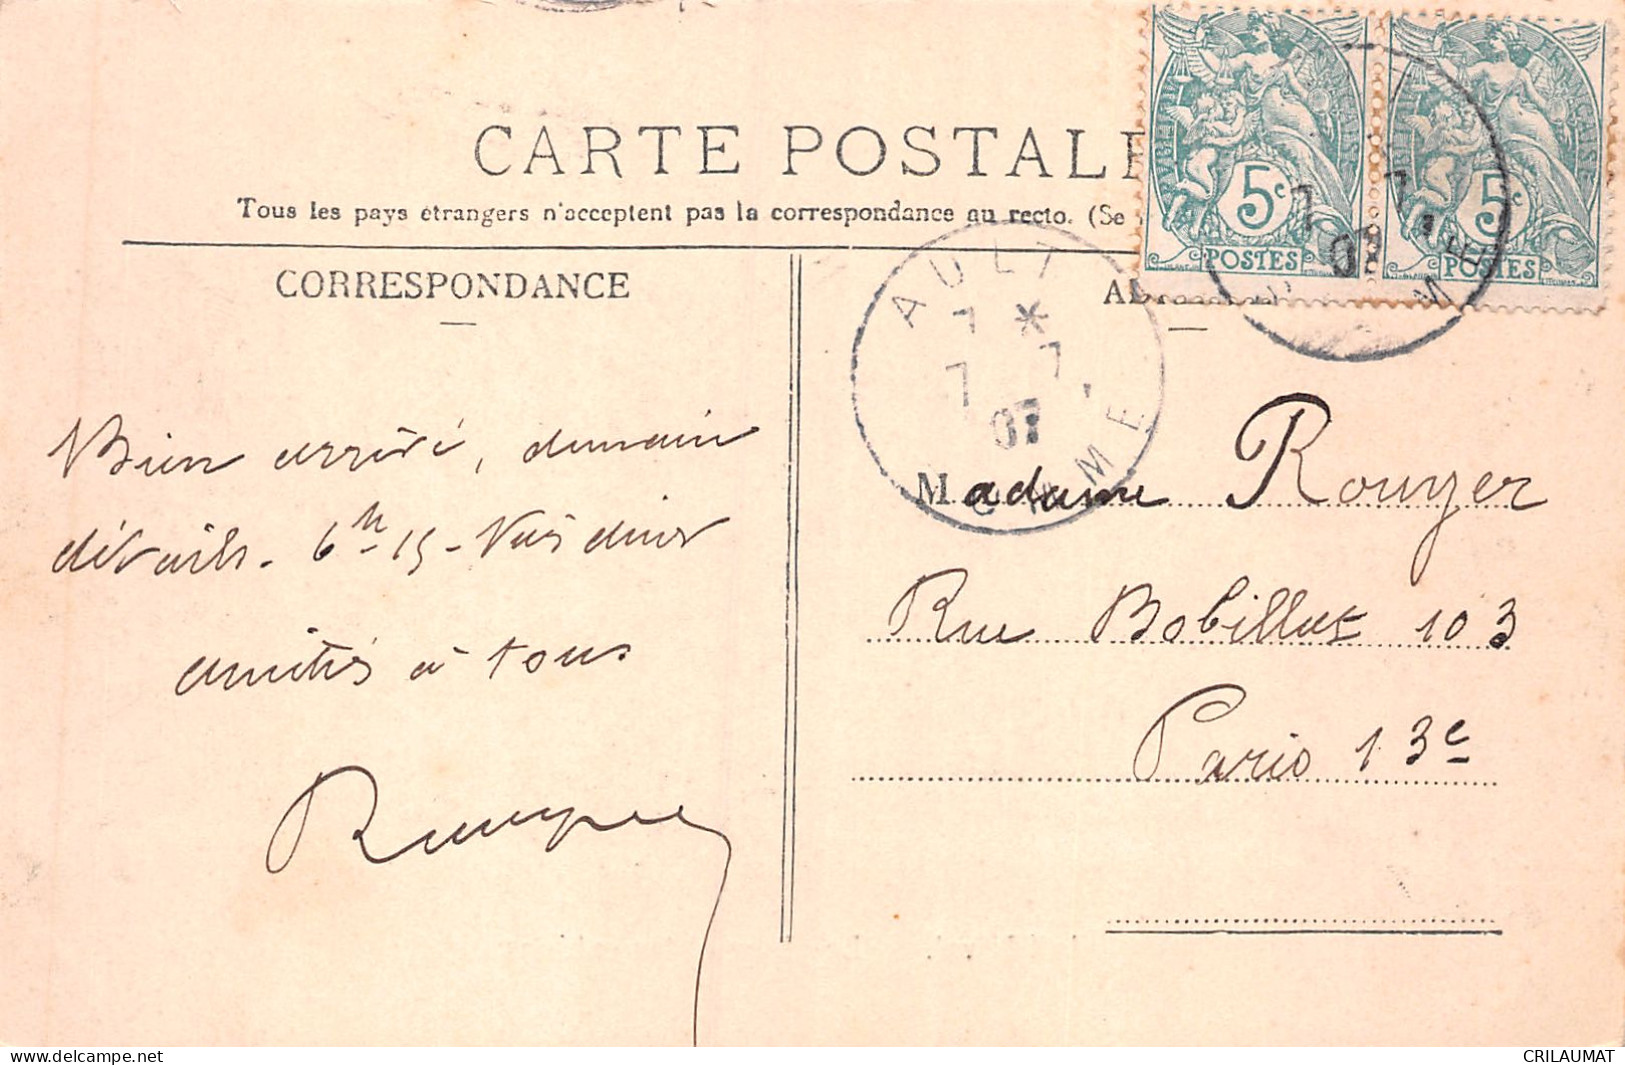 CARTE POSTALE
Tous les pays étrangers n'acceptent pas la correspondance au recto. (Se
CORRESPONDANCE
Bien arrivé, demain
détails. 6h 15 - Vais diner
amitiés à tous
Rouyer
AULT
7 *
7 7
07
SOMME
RÉPUBLIQUE FRANÇAISE
5c
POSTES
RÉPUBLIQUE FRANÇAISE
5c
POSTES
7 7
07
Madame Rouyer
Rue Bobillot 103
Paris 13e
delcampe.net
CRILAUMAT